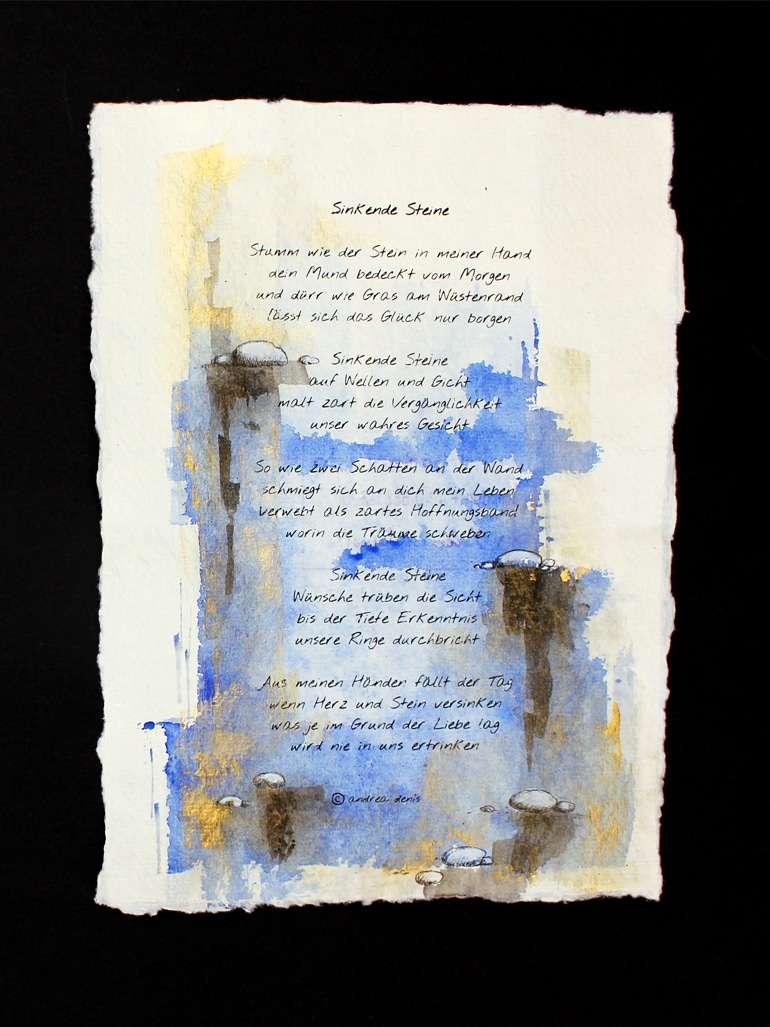 Sinkende Steine
Stumm wie der Stein in meiner Hand
dein Mund bedeckt vom Morgen
und dürr wie Gras am Wüstenrand
lässt sich das Glück nur borgen
Sinkende Steine
auf Wellen und Gicht
malt zart die Vergänglichkeit
unser wahres Gesicht
So wie zwei Schatten an der Wand
schmiegt sich an dich mein Leben
verwebt als zartes Hoffnungsband
worin die Träume schweben
Sinkende Steine
Wünsche trüben die Sicht
bis der Tiefe Erkenntnis
unsere Ringe durchbricht
Aus meinen Händen fällt der Tag
wenn Herz und Stein versinken
was je im Grund der Liebe lag
wird nie in uns ertrinken
© andrea denis